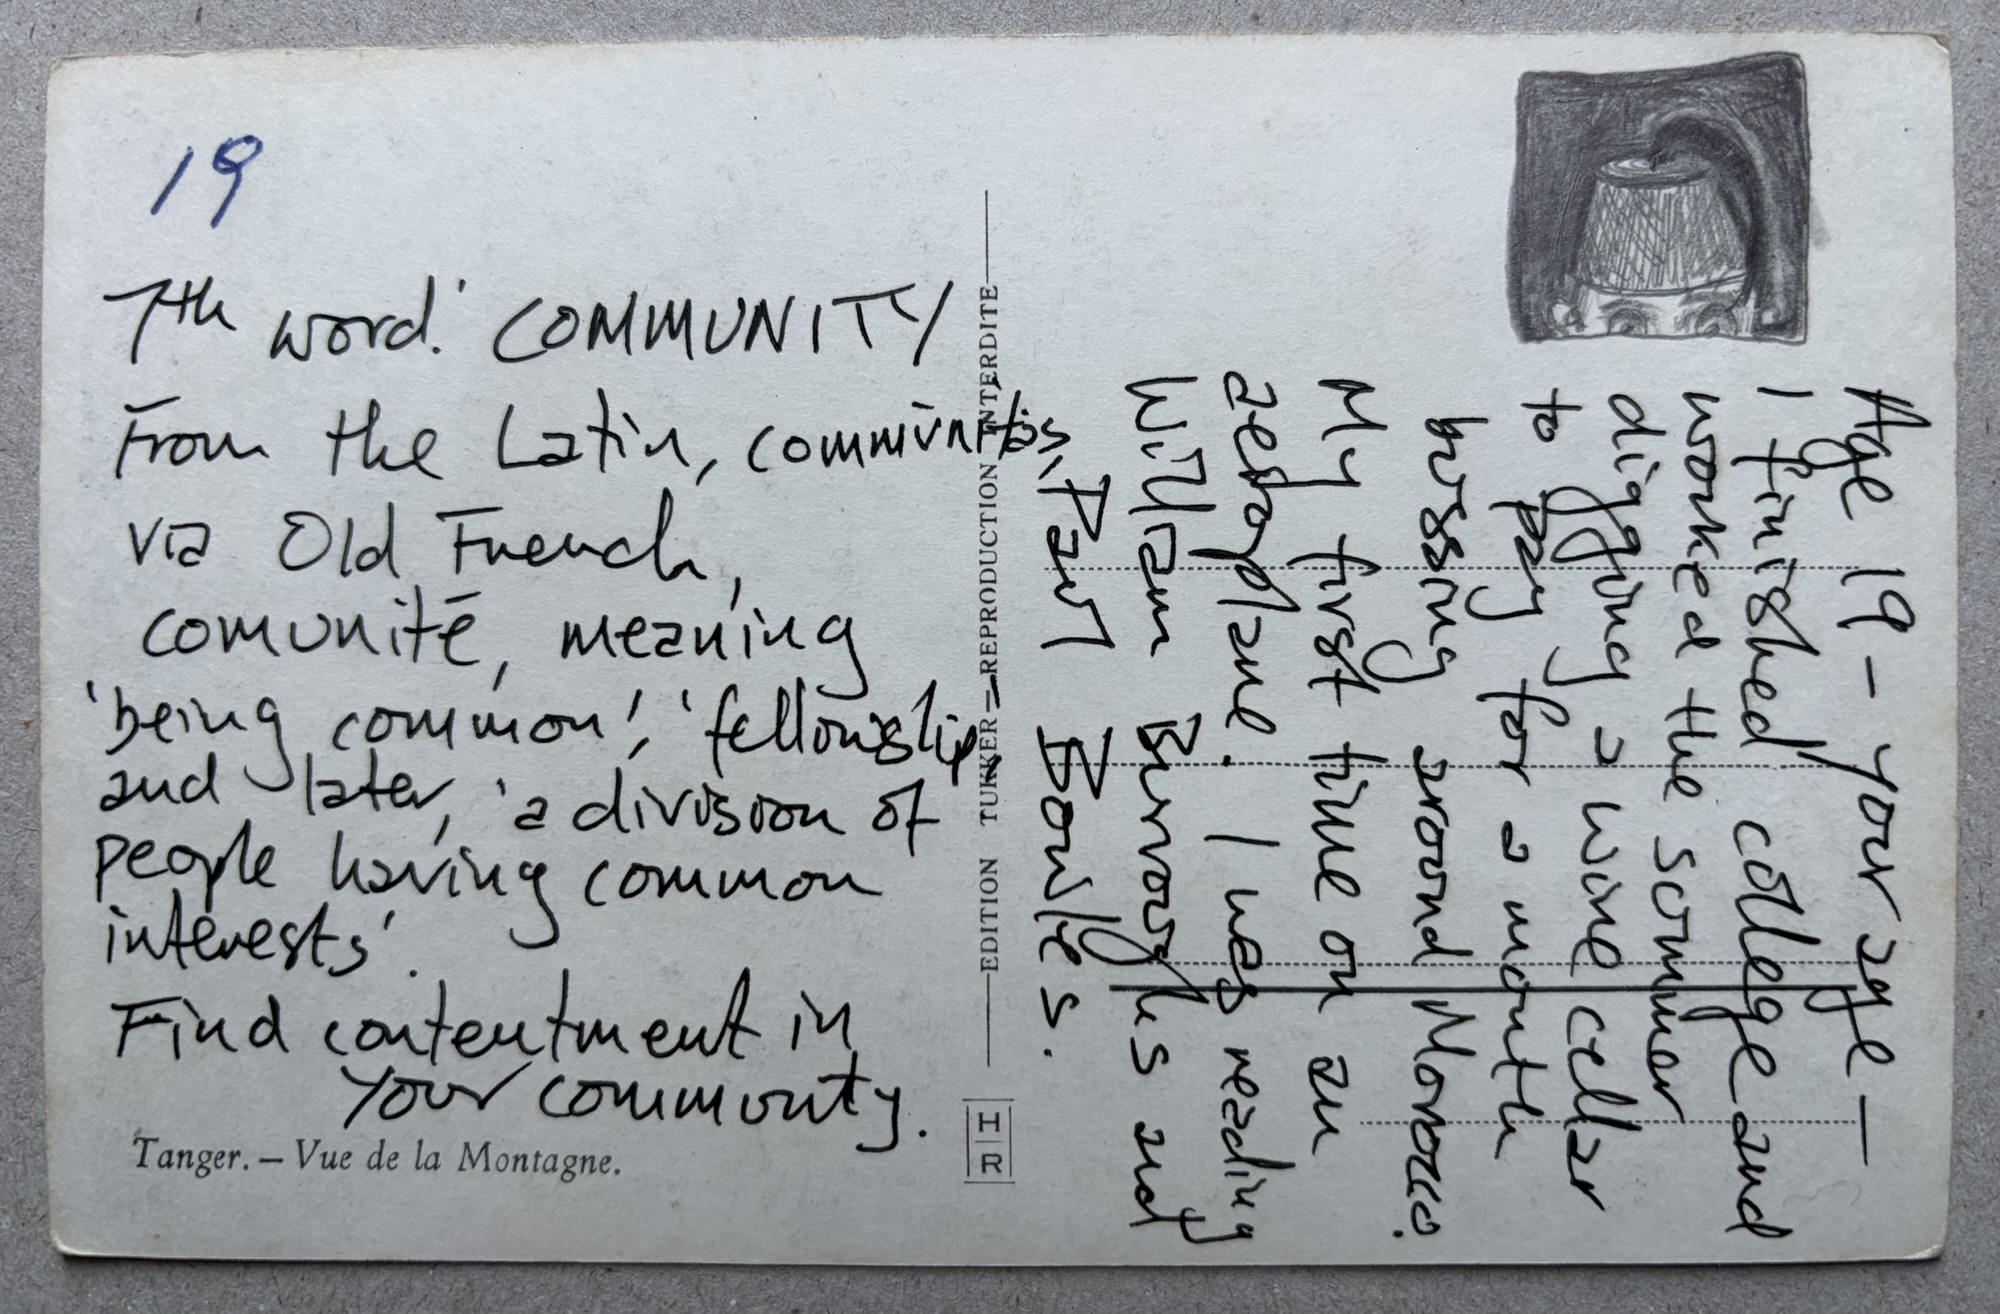 19
7th word: COMMUNITY
From the Latin, commūnitās,
via Old French,
comunité, meaning
'being common', 'fellowship,
and later, 'a division of
people having common
interests'.
Find contentment in
your community.
Tanger. — Vue de la Montagne.
EDITION TUKKER — REPRODUCTION INTERDITE
HR
Age 19 – your age –
I finished college and
worked the summer
digging a wine cellar
to pay for a month
bussing around Morocco.
My first time on an
aeroplane. I was reading
William Burroughs and
Paul Bowles.